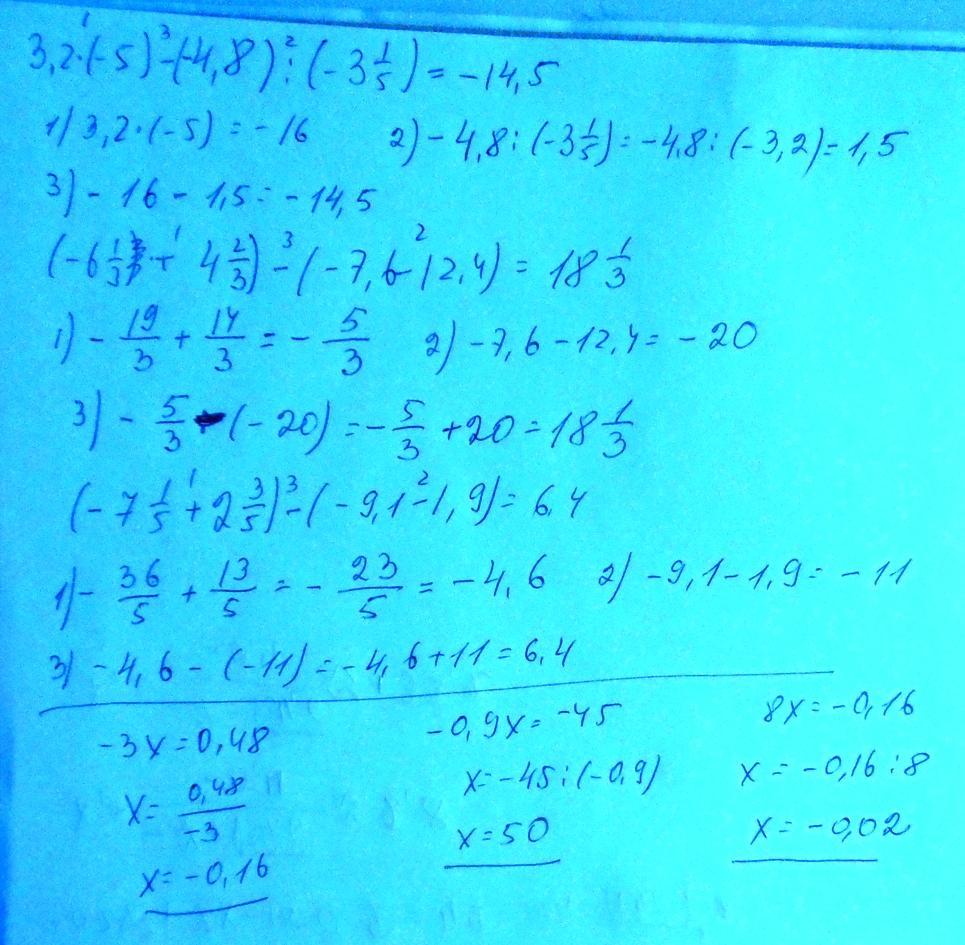 3,2·(-5)-(-4,8):(-3 1/5)=-14,5
1) 3,2·(-5)=-16 2) -4,8:(-3 1/5)=-4,8:(-3,2)=1,5
3) -16-1,5=-14,5
(-6 1/3+4 2/3)-(-7,6-12,4)=18 1/3
1) -19/3+14/3=-5/3 2) -7,6-12,4=-20
3) -5/3-(-20)=-5/3+20=18 1/3
(-7 1/5+2 3/5)-(-9,1-1,9)=6,4
1) -36/5+13/5=-23/5=-4,6 2) -9,1-1,9=-11
3) -4,6-(-11)=-4,6+11=6,4
-3x=0,48
x=0,48/-3
x=-0,16
-0,9x=-45
x=-45:(-0,9)
x=50
8x=-0,16
x=-0,16:8
x=-0,02